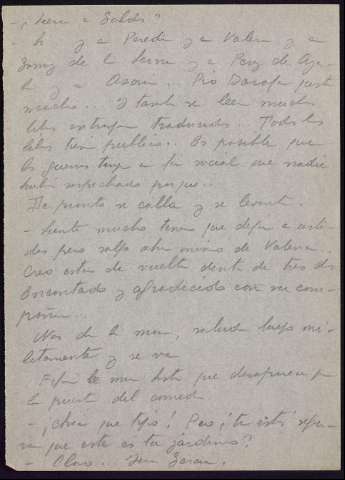 - ¿Leen a Galdós?
- Sí y a Pereda y a Valera y a
Gómez de la Serna y a Pérez de Aya-
la y a Azorín... Pío Baroja gusta
mucho... Y también se leen muchos
libros extranjeros traducidos... Todos los
libros tienen público... Es posible que
la guerra tenga un fin social que nadie
había sospechado porque...
De pronto se calla y se levanta.
- Siento mucho tener que dejar a uste-
des pero salgo ahora mismo de Valencia.
Creo estar de vuelta dentro de tres días
Encantado y agradecido con su com-
pañía...
Nos da la mano, saluda luego mi-
litarmente y se va
le mira hasta que desaparece por
la puerta del comedor
- ¡Chica que tipo! Pero ¿tú estás segu-
ra que este es tu jardinero?
- Claro...